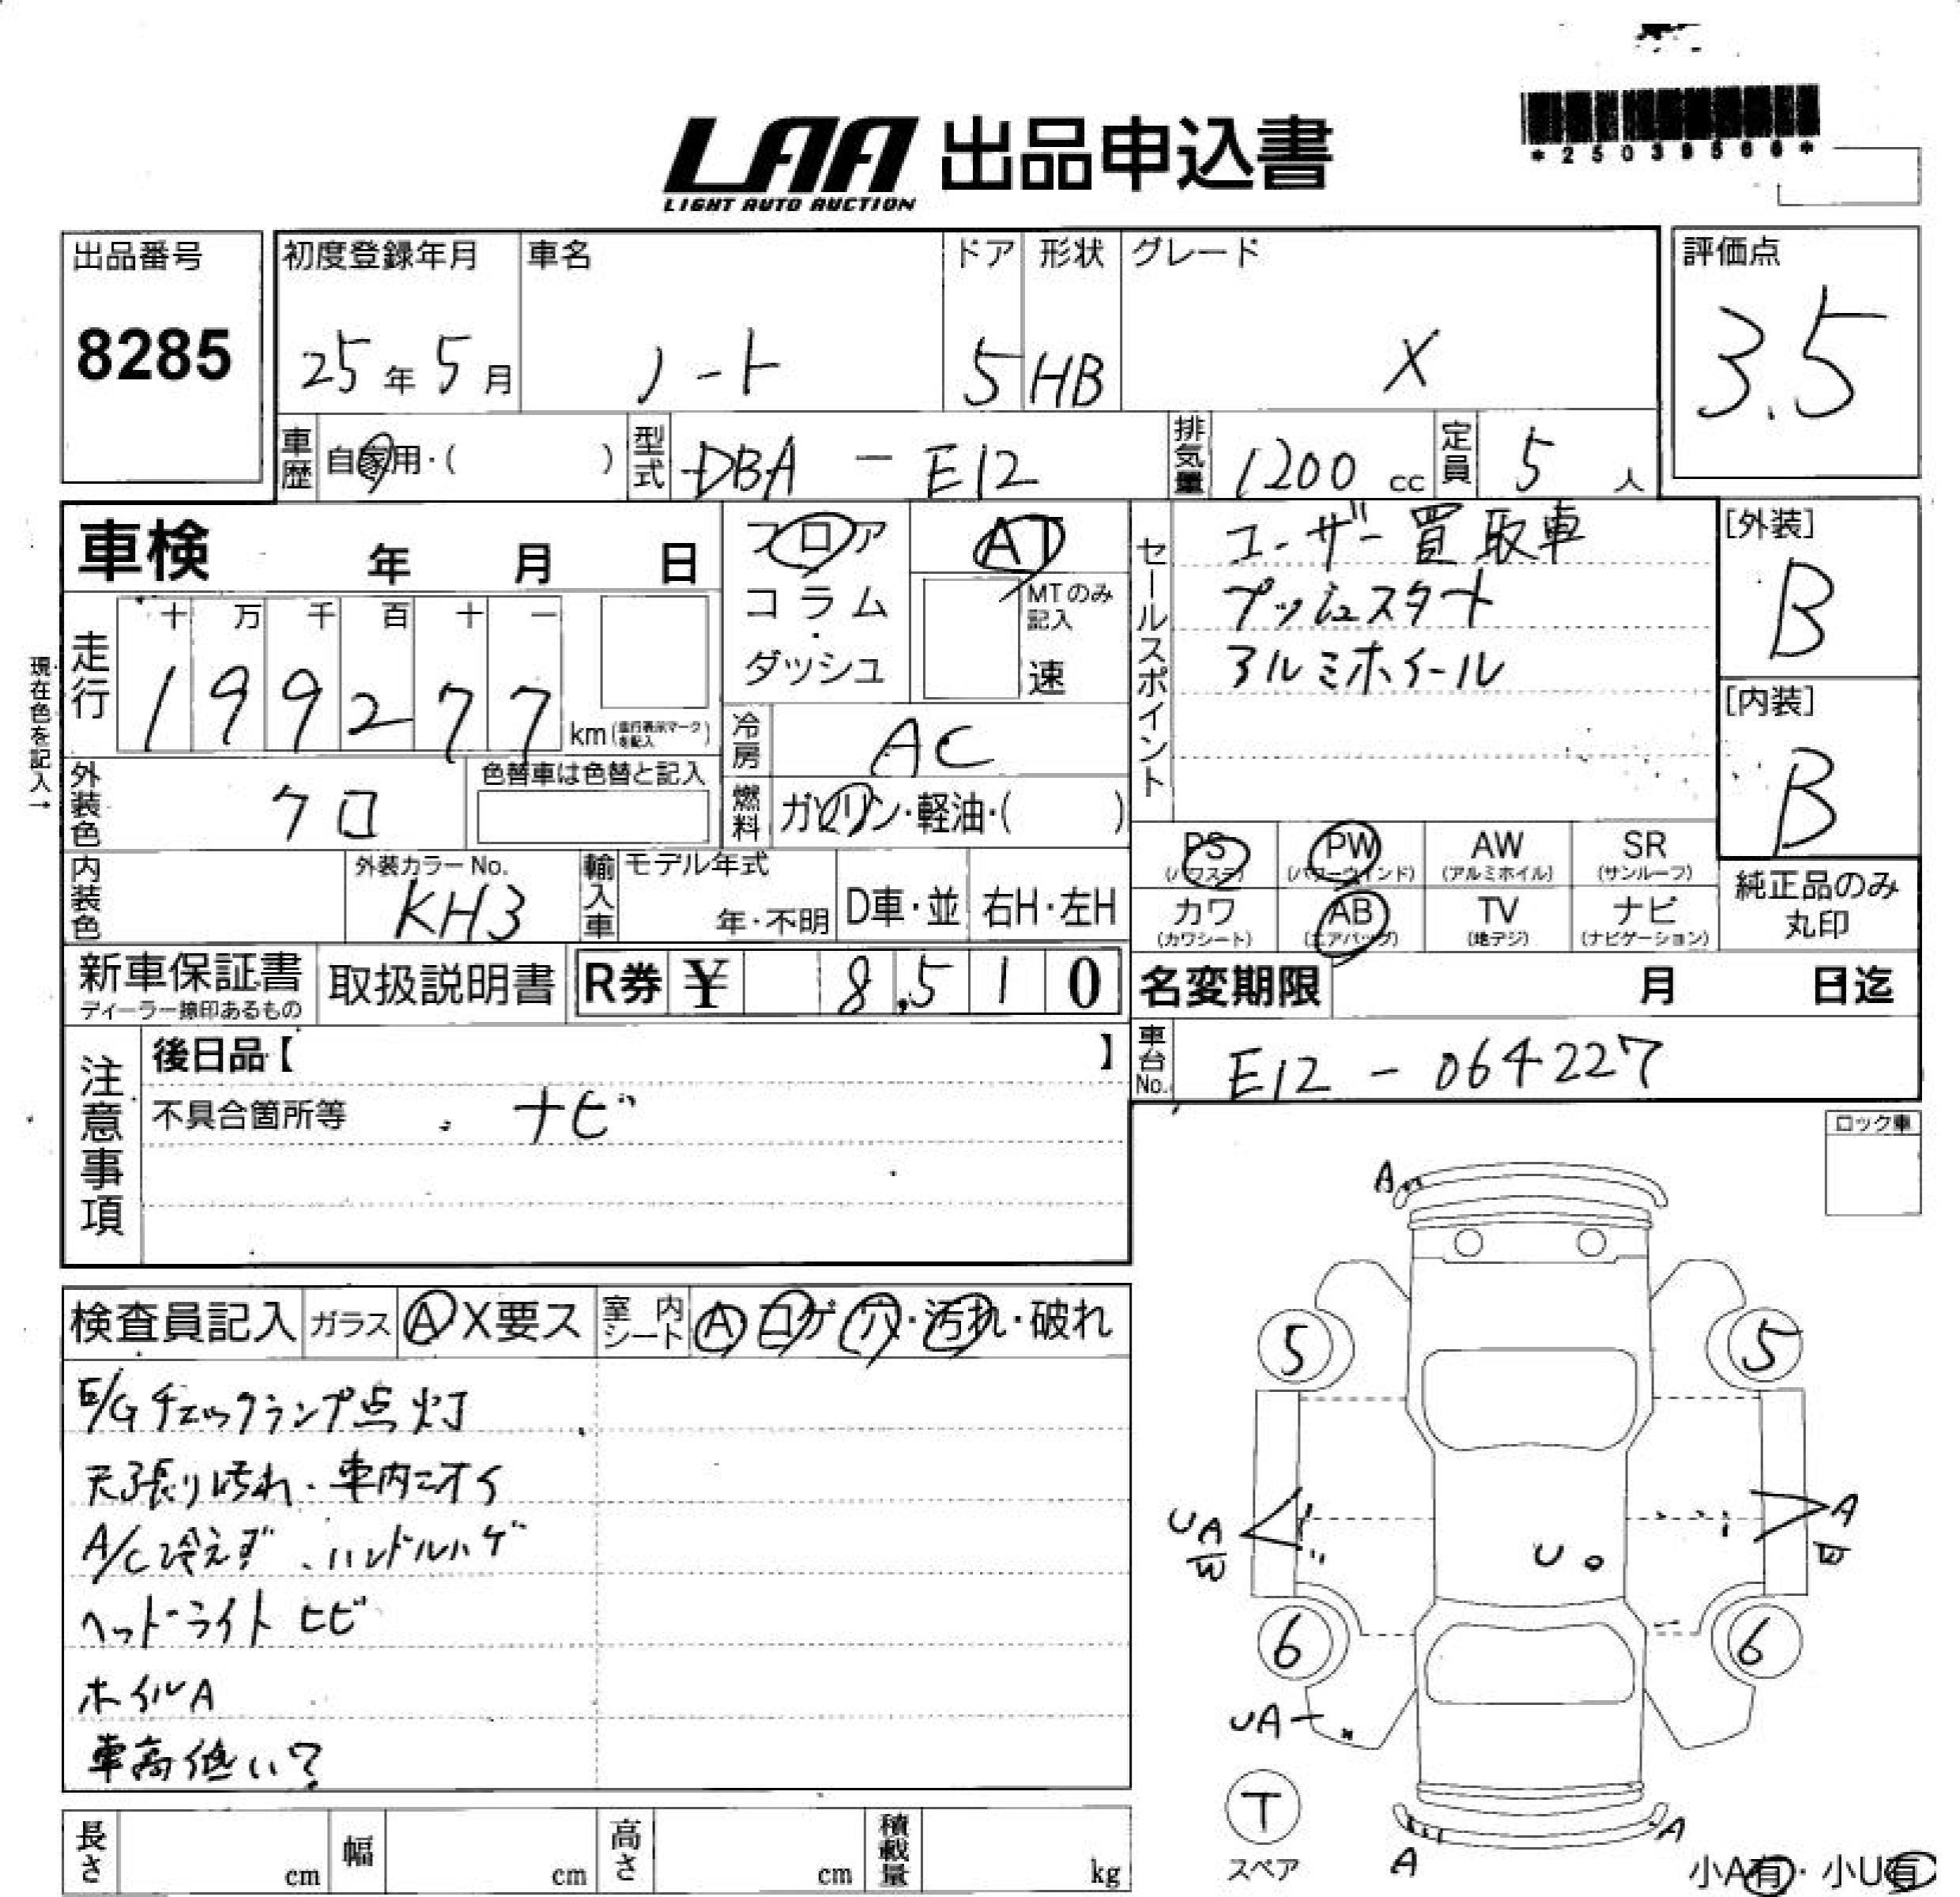 *25039568*
LAA 出品申込書
LIGHT AUTO AUCTION
出品番号
8285
初度登録年月
25年5月
車名
ノート
ドア
5
形状
HB
グレード
X
評価点
3.5
車歴
自家用・( )
型式
DBA - E12
排気量
1200 cc
定員
5人
車検 年 月 日
フロア
コラム
・
ダッシュ
AT
MTのみ
記入
速
セールスポイント
ユーザー買取車
プッシュスタート
アルミホイール
[外装]
B
[内装]
B
現在色を記入→
走行
十 万 千 百 十 一
1 9 9 2 7 7
km(走行表示マークを記入)
冷房
AC
外装色
クロ
色替車は色替と記入
燃料
ガソリン・軽油・( )
PS
(パワステ)
PW
(パワーウインド)
AW
(アルミホイル)
SR
(サンルーフ)
カワ
(カワシート)
AB
(エアバッグ)
TV
(地デジ)
ナビ
(ナビゲーション)
純正品のみ
丸印
内装色
外装カラーNo.
KH3
輸入車
モデル年式
年・不明
D車・並
右H・左H
新車保証書
ディーラー捺印あるもの
取扱説明書
R券 ¥ 8,510
名変期限 月 日迄
車台No.
E12 - 064227
注意事項
後日品【 】
不具合箇所等
ナビ
ロック車
検査員記入
ガラス
A X要ス
室内シート
A コゲ 穴・汚れ・破れ
E/Gチェックランプ点灯
天張り汚れ、車内ニオイ
A/C冷えず、ハンドルハゲ
ヘッドライトヒビ
ホイルA
車高低い?
A
5
5
UA
W
U
A
W
6
6
UA
T
スペア
A
A
小A有・小U有
長さ cm
幅 cm
高さ cm
積載量 kg